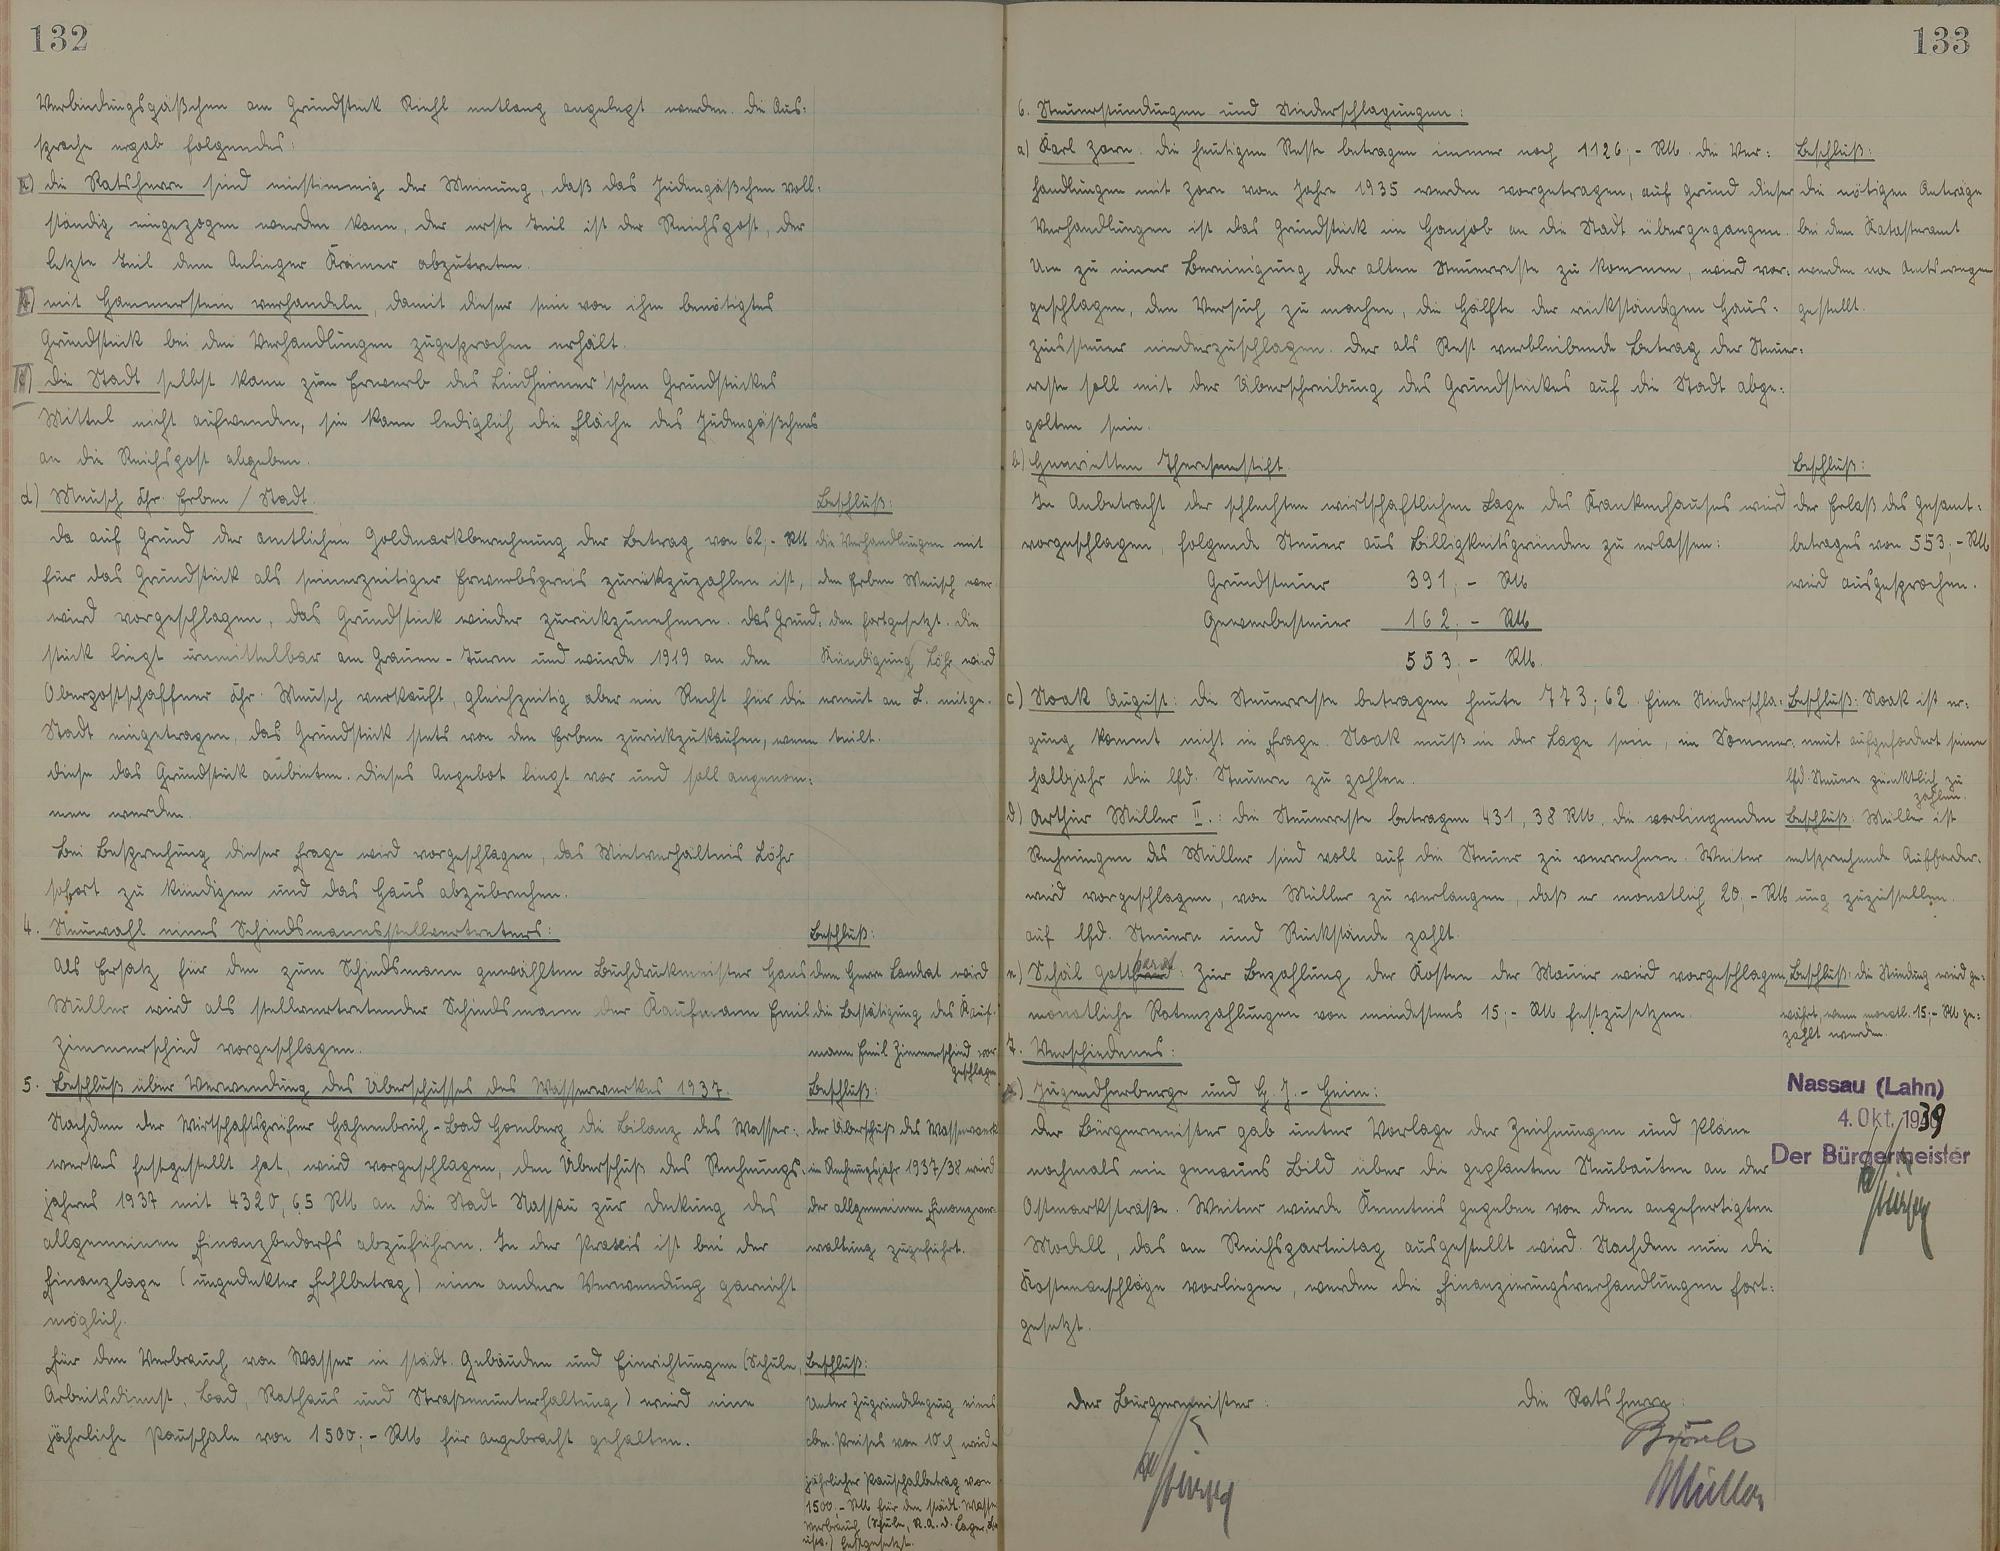 132
Verbindungsgäßchen am Grundstück Riehl entlang angelegt werden. Die Aus:
sprache ergab folgendes:
a) Die Ratsherrn sind einstimmig der Meinung, daß das Judengäßchen voll:
ständig eingezogen werden kann, der erste Teil ist der Reichspost, der
letzte Teil dem Anlieger Krämer abzutreten.
b) mit Hammerstein verhandeln, damit dieser sein von ihm benötigtes
Grundstück bei den Verhandlungen zugesprochen erhält.
c) Die Stadt selbst kann zum Erwerb des Lindheimer'schen Grundstückes
Mittel nicht aufwenden, sie kann lediglich die Fläche des Judengäßchens
an die Reichspost abgeben.
d) Meusch Chr. Erben / Stadt.
Da auf Grund der amtlichen Goldmarkberechnung der Betrag von 62,- RM
für das Grundstück als seinerzeitiger Erwerbspreis zurückzuzahlen ist,
wird vorgeschlagen, das Grundstück wieder zurückzunehmen. Das Grund:
stück liegt unmittelbar am Grauen-Turm und wurde 1919 an den
Oberpostschaffner Chr. Meusch verkauft, gleichzeitig aber ein Recht für die
Stadt eingetragen, das Grundstück stets von den Erben zurückzukaufen, wenn
diese das Grundstück anbieten. Dieses Angebot liegt vor und soll angenom:
men werden.
Bei Besprechung dieser Frage wird vorgeschlagen, das Mietverhältnis Löhr
sofort zu kündigen und das Haus abzubrechen.
Beschluß:
Die Verhandlungen mit
den Erben Meusch wer
den fortgesetzt. Die
Kündigung Löhr wird
erneut an L. mitge.
teilt.
4. Neuwahl eines Schiedsmannsstellvertreters:
Als Ersatz für den zum Schiedsmann gewählten Buchdruckmeister Hans
Müller wird als stellvertretender Schiedsmann der Kaufmann Emil
Zimmerschied vorgeschlagen.
Beschluß:
Dem Herrn Landrat wird
die Bestätigung des Kauf.
mann Emil Zimmerschied vor
geschlagen
5. Beschluß über Verwendung des Überschusses des Wasserwerkes 1937.
Nachdem der Wirtschaftsprüfer Hahnenbruch-Bad Homberg die Bilanz des Wasser:
werkes festgestellt hat, wird vorgeschlagen, den Überschuß des Rechnungs.
jahres 1937 mit 4320,65 RM an die Stadt Nassau zur Deckung des
allgemeinen Finanzbedarfs abzuführen. In der Praxis ist bei der
Finanzlage (ungedeckter Fehlbetrag) eine andere Verwendung garnicht
möglich.
Beschluß:
Der Überschuß des Wasserwerk
im Rechnungsjahr 1937/38 wird
der allgemeinen Finanzver.
waltung zugeführt.
Für den Verbrauch von Wasser in städt. Gebäuden und Einrichtungen (Schule,
Arbeitsdienst, Bad, Rathaus und Straßenunterhaltung) wird eine
jährliche Pauschale von 1500,- RM für angebracht gehalten.
Beschluß:
Unter Zugrundelegung eines
cbm. Preises von 10 ₰ wird
jährlicher Pauschalbetrag von
1500.- RM für den städt. Wasser
verbrauch (Schule, R.A.D. Lager,
usw.) festgesetzt.
133
6. Steuerstundungen und Niederschlagungen:
a) Karl Zorn. Die heutigen Reste betragen immer noch 1126,- RM. Die Ver:
handlungen mit Zorn vom Jahre 1935 werden vorgetragen, auf Grund dieser
Verhandlungen ist das Grundstück im Hansob an die Stadt übergegangen.
Um zu einer Bereinigung der alten Steuerreste zu kommen, wird vor:
geschlagen, den Versuch zu machen, die Hälfte der rückständigen Haus:
zinssteuer niederzuschlagen. Der als Rest verbleibende Betrag der Steuer:
reste soll mit der Überschreibung des Grundstückes auf die Stadt abge:
golten sein.
Beschluß:
Die nötigen Anträge
bei dem Katasteramt
werden von Amtswegen
gestellt.
b) Henrietten Theresenstift.
In Anbetracht der schlechten wirtschaftlichen Lage des Krankenhauses wird
vorgeschlagen, folgende Steuer aus Billigkeitsgründen zu erlassen:
Grundsteuer 391,- RM
Gewerbesteuer 162,- RM
553,- RM.
Beschluß:
Der Erlaß des Gesamt.
betrages von 553,- RM
wird ausgesprochen.
c) Noak August: Die Steuerreste betragen heute 773,62. Eine Niederschla.
gung kommt nicht in Frage. Noak muß in der Lage sein, im Sommer.
halbjahr die lfd. Steuern zu zahlen.
Beschluß: Noak ist er:
neut aufgefordert seine
lfd. Steuern pünktlich zu
zahlen.
d) Arthur Müller II.: Die Steuerreste betragen 431,38 RM. Die vorliegenden
Rechnungen des Müller sind voll auf die Steuer zu verrechnen. Weiter
wird vorgeschlagen, von Müller zu verlangen, daß er monatlich 20,- RM
auf lfd. Steuern und Rückstände zahlt.
Beschluß: Müller ist
entsprechende Aufforder.
ung zuzustellen.
e) Schäl Gotthard: Zur Bezahlung der Kosten der Mauer wird vorgeschlagen,
monatliche Ratenzahlungen von mindestens 15,- RM festzusetzen.
Beschluß: Die Stundung wird ge:
währt, wenn monatl. 15,- RM ge:
zahlt werden.
7. Verschiedenes:
a) Jugendherberge und H.J.-Heim:
Der Bürgermeister gab unter Vorlage der Zeichnungen und Pläne
nochmals ein genaues Bild über die geplanten Neubauten an der
Ostmarkstraße. Weiter wurde Kenntnis gegeben von dem angefertigten
Modell, das am Reichsparteitag ausgestellt wird. Nachdem nun die
Kostenanschläge vorliegen, werden die Finanzierungsverhandlungen fort:
gesetzt.
Nassau (Lahn)
4. Okt. 1939
Der Bürgermeister
Der Bürgermeister:
Die Ratsherrn:
Müller